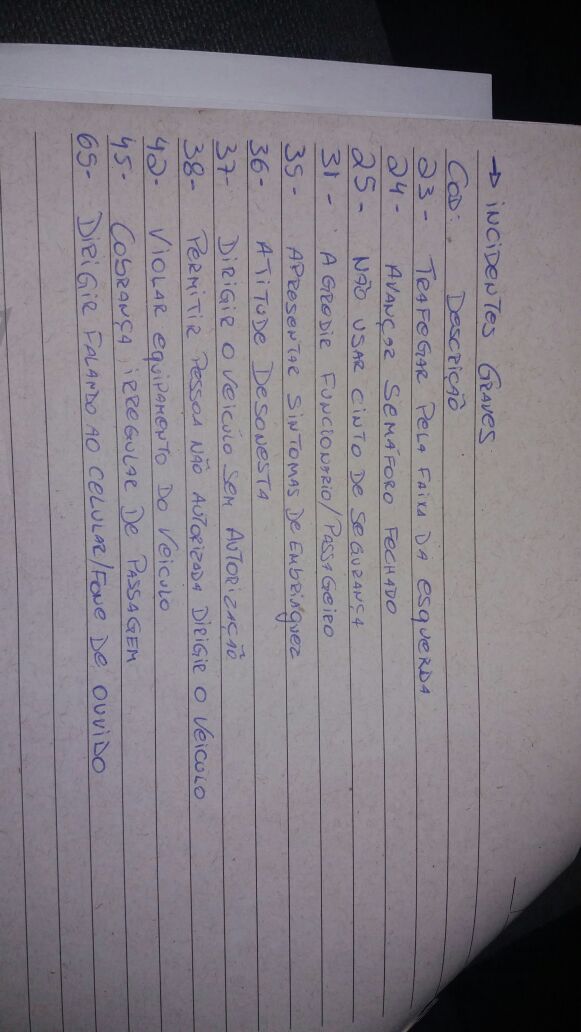 → INCIDENTES GRAVES
COD: DESCRIÇÃO
23 - TRAFEGAR PELA FAIXA DA ESQUERDA
24 - AVANÇAR SEMÁFORO FECHADO
25 - NÃO USAR CINTO DE SEGURANÇA
31 - AGREDIR FUNCIONARIO/PASSAGEIRO
35 - APRESENTAR SINTOMAS DE EMBRIAGUEZ
36 - ATITUDE DESONESTA
37 - DIRIGIR O VEICULO SEM AUTORIZAÇÃO
38 - PERMITIR PESSOA NÃO AUTORIZADA DIRIGIR O VEICULO
42 - VIOLAR EQUIPAMENTO DO VEICULO
45 - COBRANÇA IRREGULAR DE PASSAGEM
65 - DIRIGIR FALANDO AO CELULAR/FONE DE OUVIDO